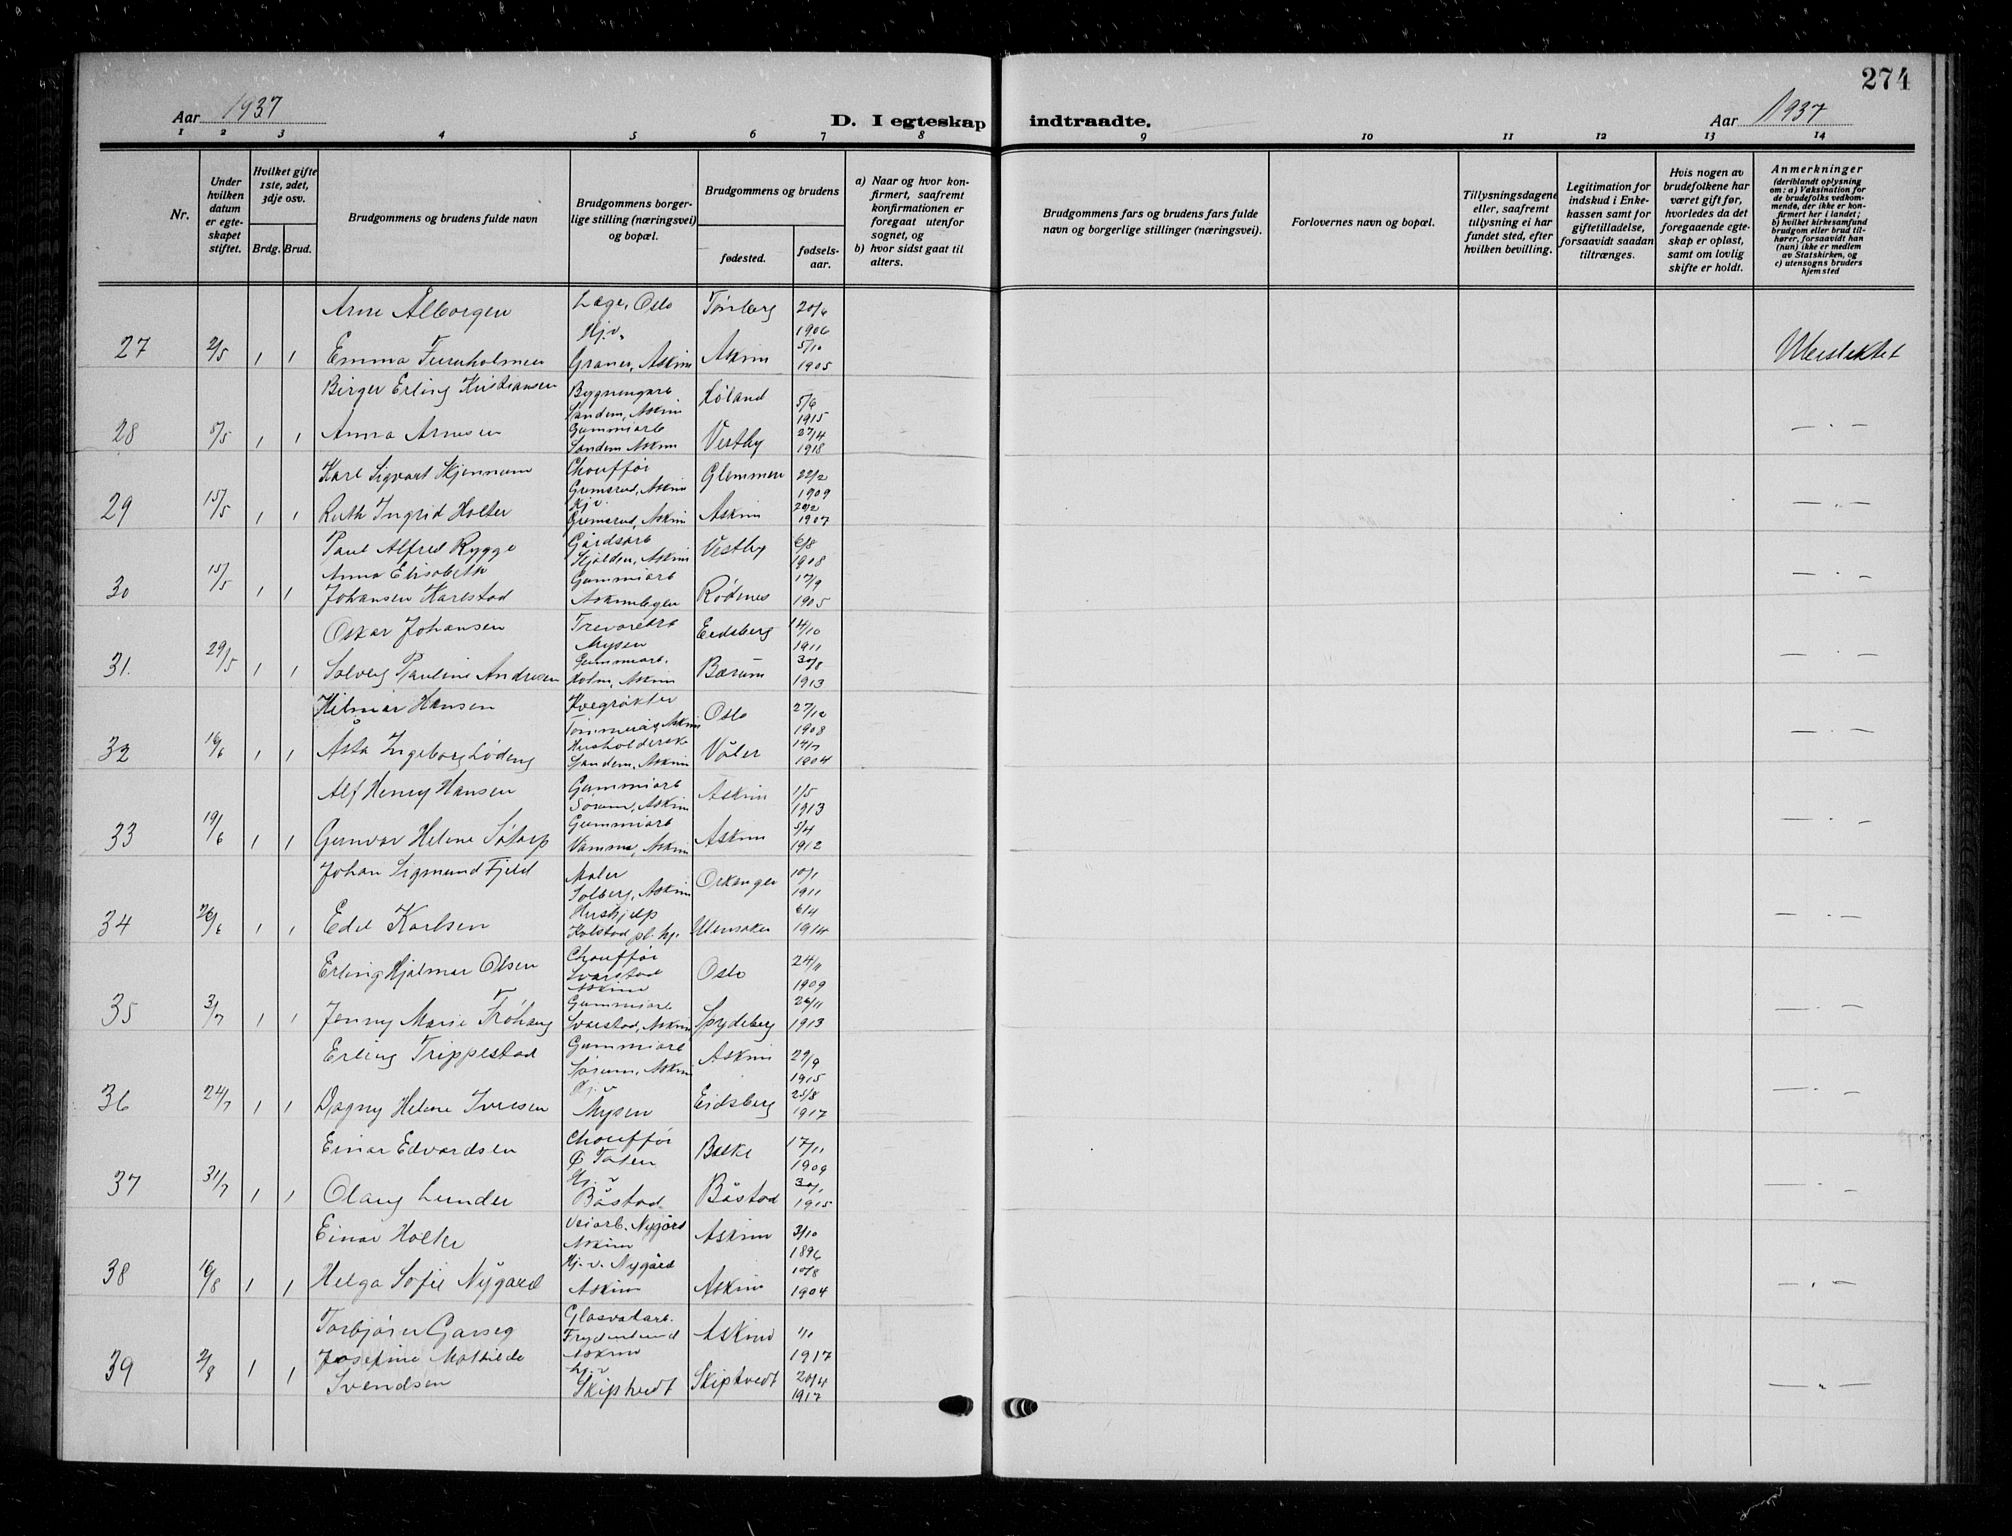 274
Aar 1937
D. I egteskap indtraadte.
Aar 1937
1 2 3 4 5 6 7 8 9 10 11 12 13 14
Nr.
Under hvilken datum er egteskapet stiftet.
Hvilket gifte 1ste, 2det, 3dje osv.
Brdg. Brud.
Brudgommens og brudens fulde navn
Brudgommens borgerlige stilling (næringsvei) og bopæl.
Brudgommens og brudens
fødested.
fødselsaar.
a) Naar og hvor konfirmert, saafremt konfirmationen er foregaat utenfor sognet, og
b) hvor sidst gaat til alters.
Brudgommens fars og brudens fars fulde navn og borgerlige stillinger (næringsvei).
Forlovernes navn og bopæl.
Tillysningsdagene eller, saafremt tillysning ei har fundet sted, efter hvilken bevilling.
Legitimation for indskud i Enkekassen samt for giftetilladelse, forsaavidt saadan tiltrænges.
Hvis nogen av brudefolkene har været gift før, hvorledes da det foregaaende egteskap er opløst, samt om lovlig skifte er holdt.
Anmerkninger
(deriblandt oplysning om: a) Vaksination for de brudefolks vedkommende, der ikke er konfirmert her i landet; b) hvilket kirkesamfund brudgom eller brud tilhører, forsaavidt han (hun) ikke er medlem av Statskirken, og c) utensogns bruders hjemsted
Arne Ålborgen Læge, Oslo Tønsberg 20/6 1906
27 2/5 1 1 Emma Furuholmen Hj.v. Graner, Askim Askim 5/10 1905 Uberslektet
Birger Erling Kristiansen Bygningsarb Sandem, Askim Høland 5/6 1915
28 5/5 1 1 Anna Arnesen Gummiarb Sandem Askim Vestby 27/4 1918 — . —
Karl Sigvart Skjennum Chouffør Grimsrud, Askim Glemmen 22/2 1909
29 15/5 1 1 Ruth Ingrid Holter Hj.v. Grimsrud, Askim Askim 20/2 1907 — . —
Paul Alfred Rygge Gårdsarb Skjolden, Askim Vestby 6/8 1908
30 15/5 1 1 Anna Elisabeth Johansen Harestad Gummiarb Askimbyen Rødenes 17/9 1905 — . —
Oskar Johansen Trevarearb Mysen Eidsberg 14/10 1911
31. 29/5 1 1 Solveig Pauline Andresen Gummiarb. Holm, Askim Bærum 30/8 1913 — . —
Hilmar Hansen Kvegrøkter Tømmerås Askim Oslo 27/12 1908
32 16/6 1 1 Åsta Ingeborg Lødeng Husholderske Sandem, Askim Våler 14/7 1904 — . —
Alf Henry Hansen Gummiarb Sørum, Askim Askim 1/5 1913
33 19/6 1 1 Gunvor Helene Sótorp Gummiarb Vamma, Askim Askim 5/4 1912 — . —
Johan Sigmund Fjeld Maler Solberg, Askim Orkanger 10/1 1911
34 26/6 1 1 Edel Karlsen Hushjelp Kolstad pl. hj. Ullensaker 6/4 1914 — . —
Erling Hjalmar Olsen Chouffør Svarstad Askim Oslo 24/11 1909
35 3/7 1 1 Jenny Marie Frøhaug Gummiarb Svarstad, Askim Spydeberg 26/11 1913 — . —
Erling Trippestad Gummiarb Sørum, Askim Askim 29/9 1915
36 24/7 1 1 Dagny Helene Iversen Hj. v Mysen Eidsberg 25/8 1917 — . —
Einar Edvardsen Chouffør Ø Toten Balke 17/11 1909
37 31/7 1 1 Olaug Lunder Hj. v Båstad Båstad 30/1 1915 — . —
Einar Holter Veiarb. Nygård Askim Askim 3/10 1896
38 16/8 1 1 Helga Sofie Nygaard Hj. v. Nygård Askim Askim 10/8 1904 — . —
Torbjørn Garseg Glasvatarb. Frydenlund Askim Askim 1/10 1917
39 21/8 1 1 Josefine Mathilde Svendsen hj. v Skiptvedt Skiptvedt 20/4 1917 — . —